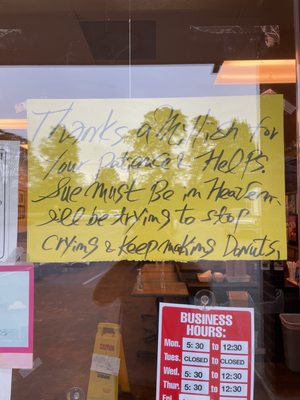 Thanks a Million for
Your patience & Helps.
Sue Must Be in Heaven.
ill be trying to stop
crying & keep making Donuts,
BUSINESS
HOURS:
Mon. 5:30 to 12:30
Tues. CLOSED to CLOSED
Wed. 5:30 to 12:30
Thur. 5:30 to 12:30
Fri.